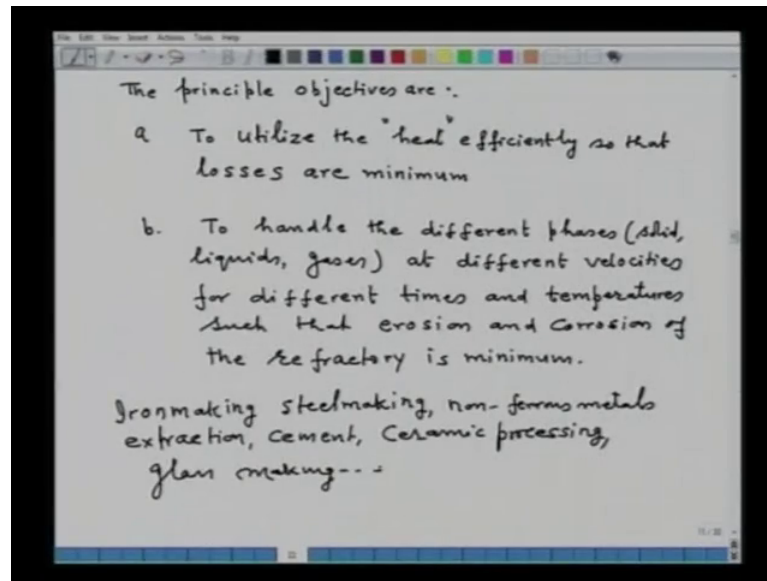 File Edit View Insert Actions Tools Help
The principle objectives are :.
a To utilize the "heat" efficiently so that
losses are minimum
b. To handle the different phases (solid,
liquids, gases) at different velocities
for different times and temperatures
such that erosion and corrosion of
the refractory is minimum.
Ironmaking steelmaking, non-ferrous metals
extraction, cement, Ceramic processing,
glass making---